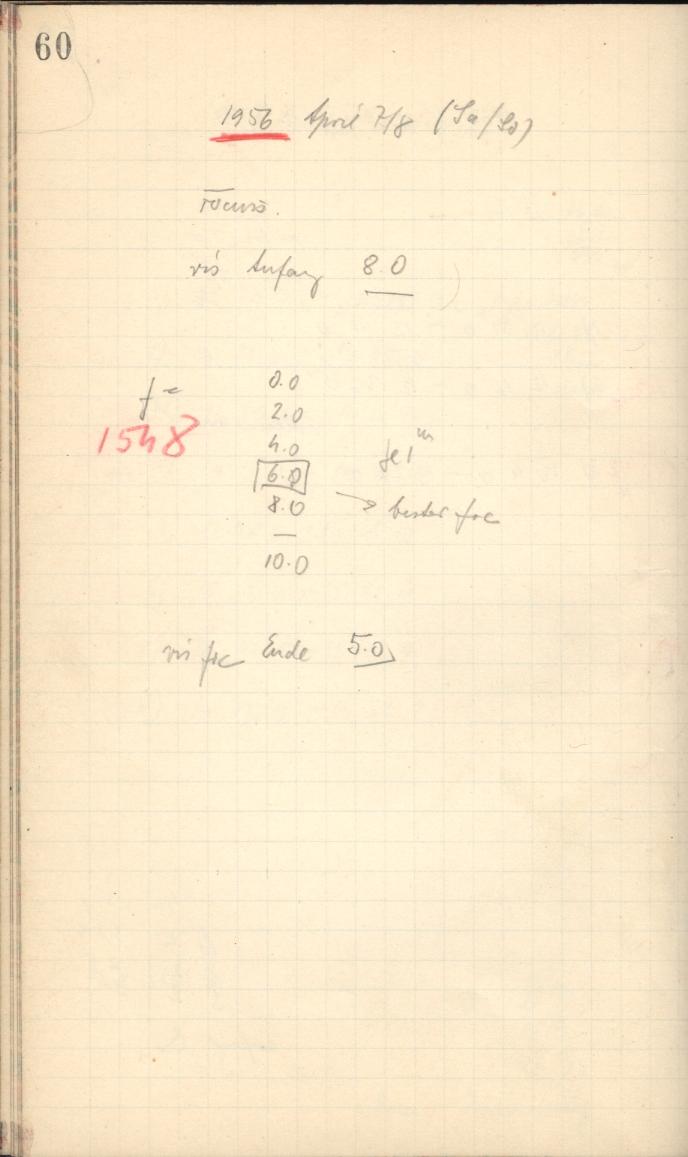 60
1956 April 7/8 (Sa/So)
Focus.
vis Anfang 8.0
f =
1548
0.0
2.0
4.0
6.0
8.0
—
10.0
je 1ᵐ
→ bester foc
vis foc Ende 5.0